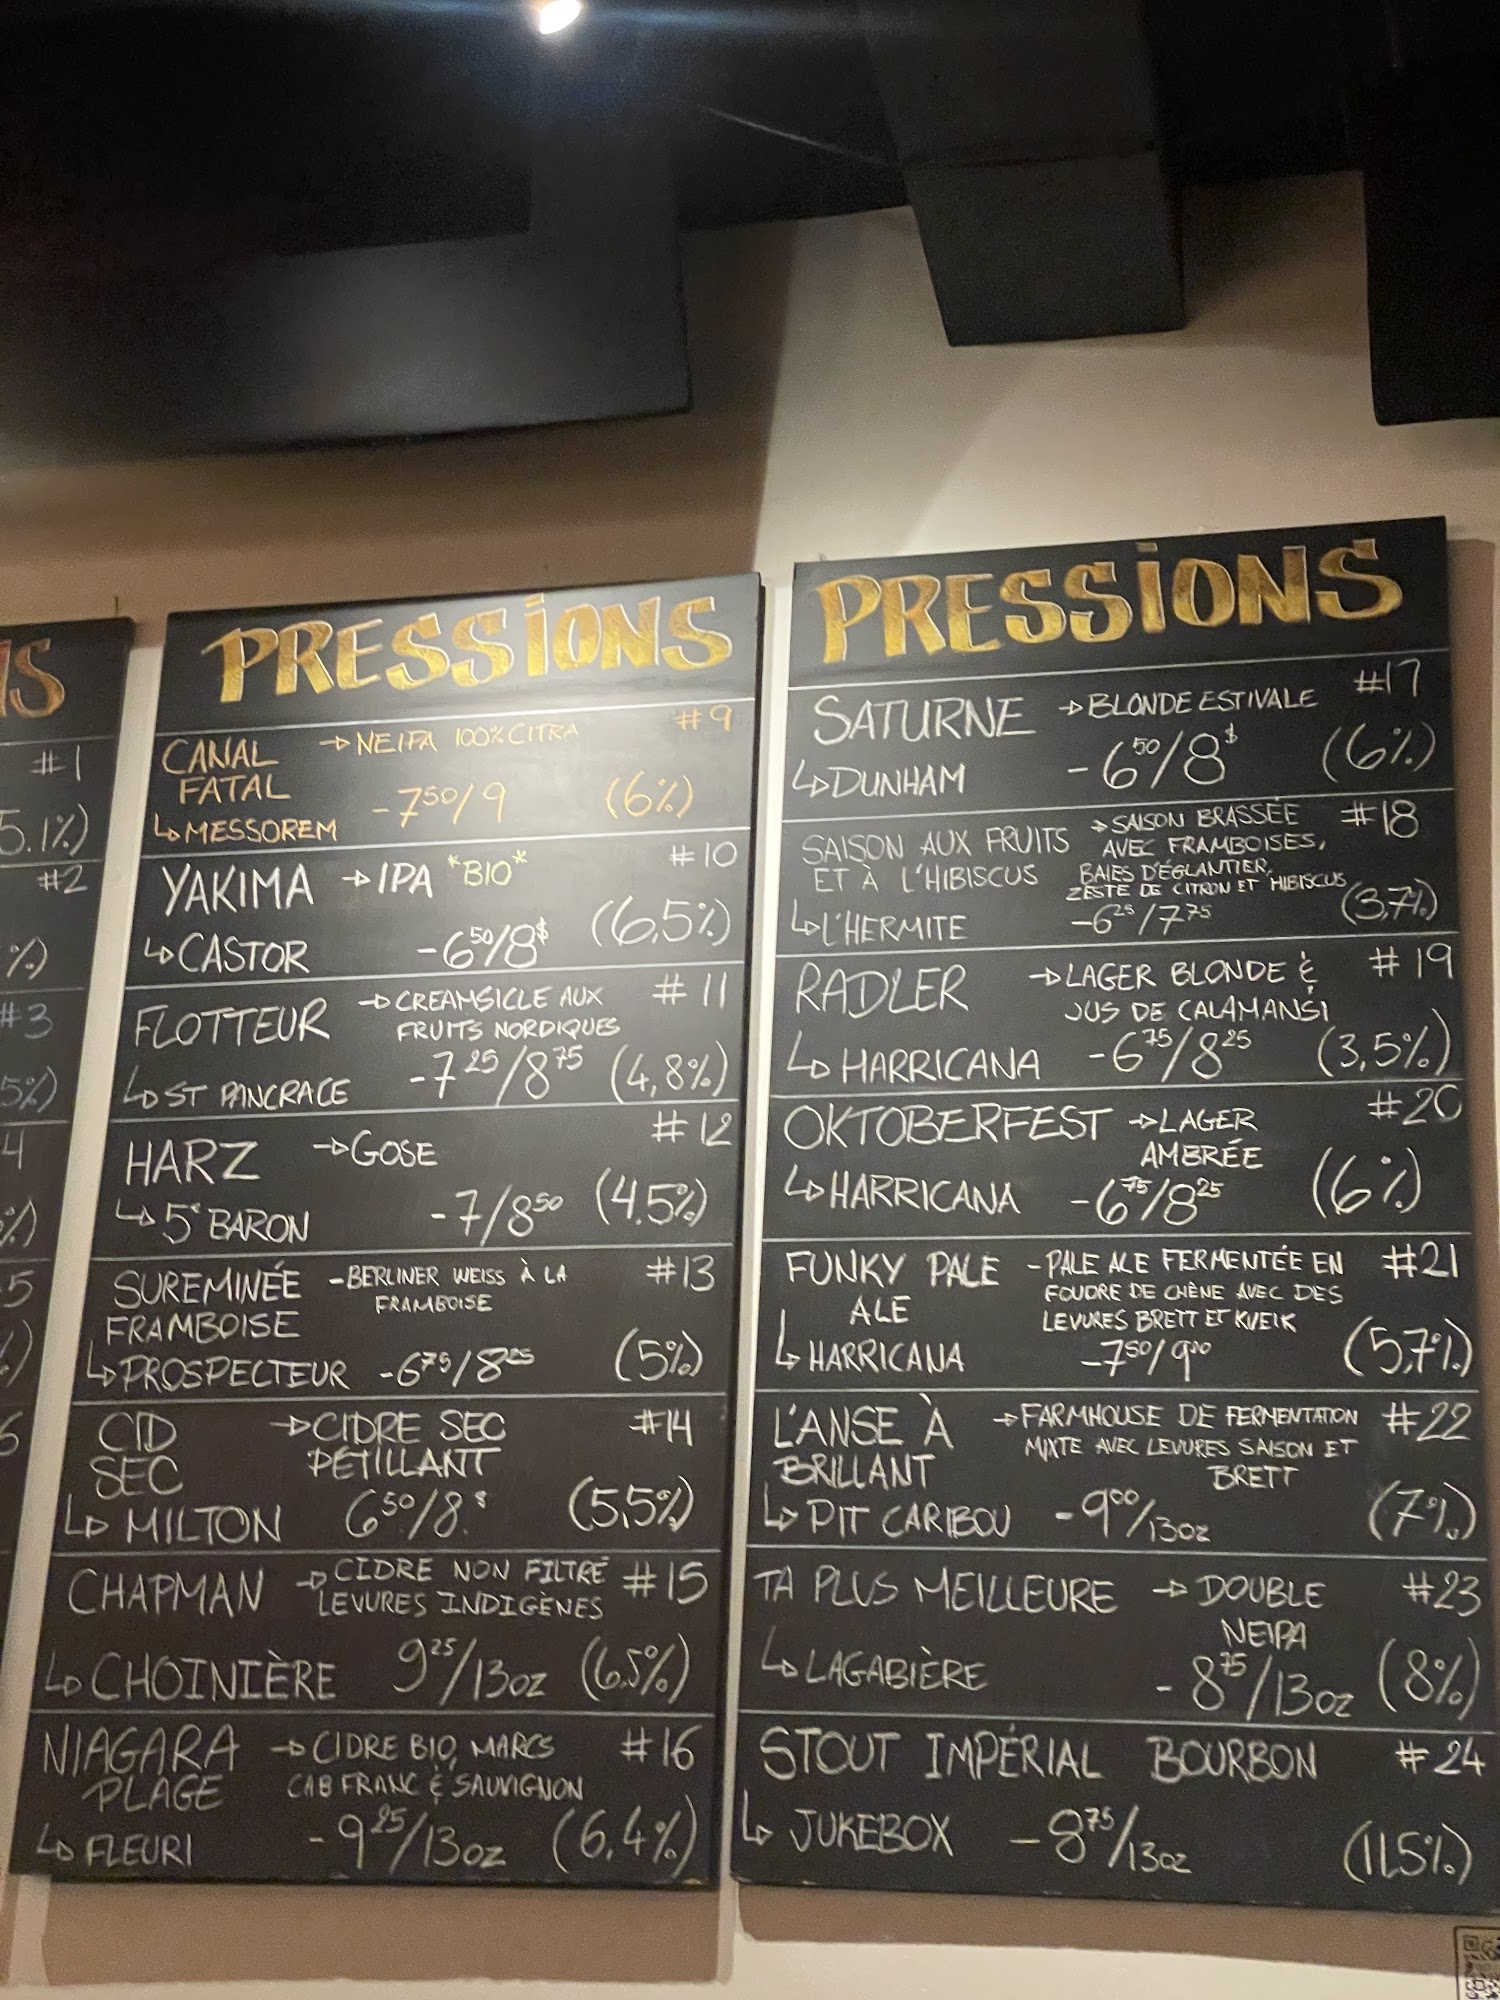 NS
#1
5.1%)
#2
%)
#3
5%)
4
%)
5
6
PRESSIONS
CANAL → NEIPA 100% CITRA #9
FATAL - 7 50/9 (6%)
↳ MESSOREM
YAKIMA → IPA *BIO* #10
↳ CASTOR - 6 50/8 $ (6,5%)
FLOTTEUR → CREAMSICLE AUX #11
FRUITS NORDIQUES
↳ ST PANCRACE - 7 25/8 75 (4,8%)
HARZ → GOSE #12
↳ 5e BARON - 7/8 50 (4.5%)
SUREMINÉE - BERLINER WEISS À LA #13
FRAMBOISE FRAMBOISE
↳ PROSPECTEUR - 6 75/8 25 (5%)
CID → CIDRE SEC #14
SEC PÉTILLANT
↳ MILTON 6 50/8 $ (5,5%)
CHAPMAN → CIDRE NON FILTRÉ #15
LEVURES INDIGÈNES
↳ CHOINIÈRE 9 25/13oz (6,5%)
NIAGARA → CIDRE BIO, MARCS #16
PLAGE CAB FRANC & SAUVIGNON
↳ FLEURI - 9 25/13oz (6,4%)
PRESSIONS
SATURNE → BLONDE ESTIVALE #17
↳ DUNHAM - 6 50/8 $ (6%)
SAISON AUX FRUITS → SAISON BRASSÉE #18
ET À L'HIBISCUS AVEC FRAMBOISES,
BAIES D'ÉGLANTIER,
ZESTE DE CITRON ET HIBISCUS
↳ L'HERMITE - 6 25/7 75 (3,7%)
RADLER → LAGER BLONDE & #19
JUS DE CALAMANSI
↳ HARRICANA - 6 75/8 25 (3,5%)
OKTOBERFEST → LAGER #20
AMBRÉE
↳ HARRICANA - 6 75/8 25 (6%)
FUNKY PALE - PALE ALE FERMENTÉE EN #21
ALE FOUDRE DE CHÊNE AVEC DES
LEVURES BRETT ET KVEIK
↳ HARRICANA - 7 50/9 00 (5,7%)
L'ANSE À → FARMHOUSE DE FERMENTATION #22
BRILLANT MIXTE AVEC LEVURES SAISON ET
BRETT
↳ PIT CARIBOU - 9 00/13oz (7%)
TA PLUS MEILLEURE → DOUBLE #23
NEIPA
↳ LAGABIÈRE - 8 75/13oz (8%)
STOUT IMPÉRIAL BOURBON #24
↳ JUKEBOX - 8 75/13oz (11,5%)